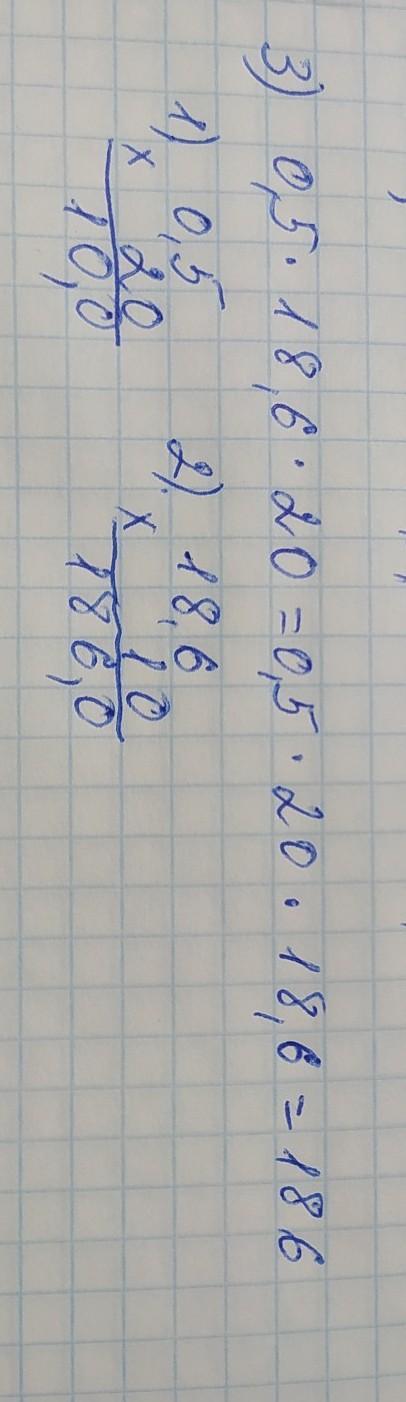 3) 0,5 · 18,6 · 20 = 0,5 · 20 · 18,6 = 186
1) 0,5 2) 18,6
× 20 × 10
10,0 186,0